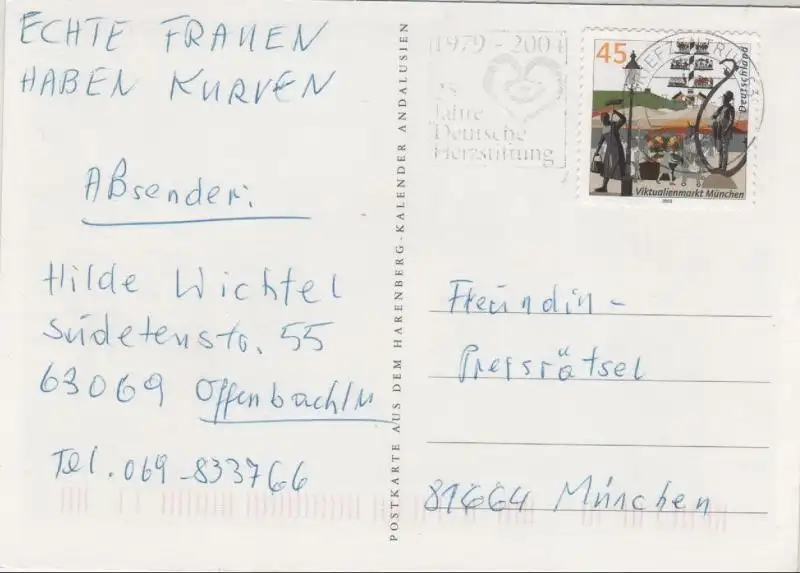 ECHTE FRAUEN
HABEN KURVEN
Absender:
Hilde Wichtel
Sudetenstr. 55
63069 Offenbach/M
Tel. 069-833766
POSTKARTE AUS DEM HARENBERG-KALENDER ANDALUSIEN
1979 - 2004
25
Jahre
Deutsche
Herzstiftung
45
Deutschland
Viktualienmarkt München
2003
BRIEFZENTRUM
Freundin-
Preisrätsel
81664 München